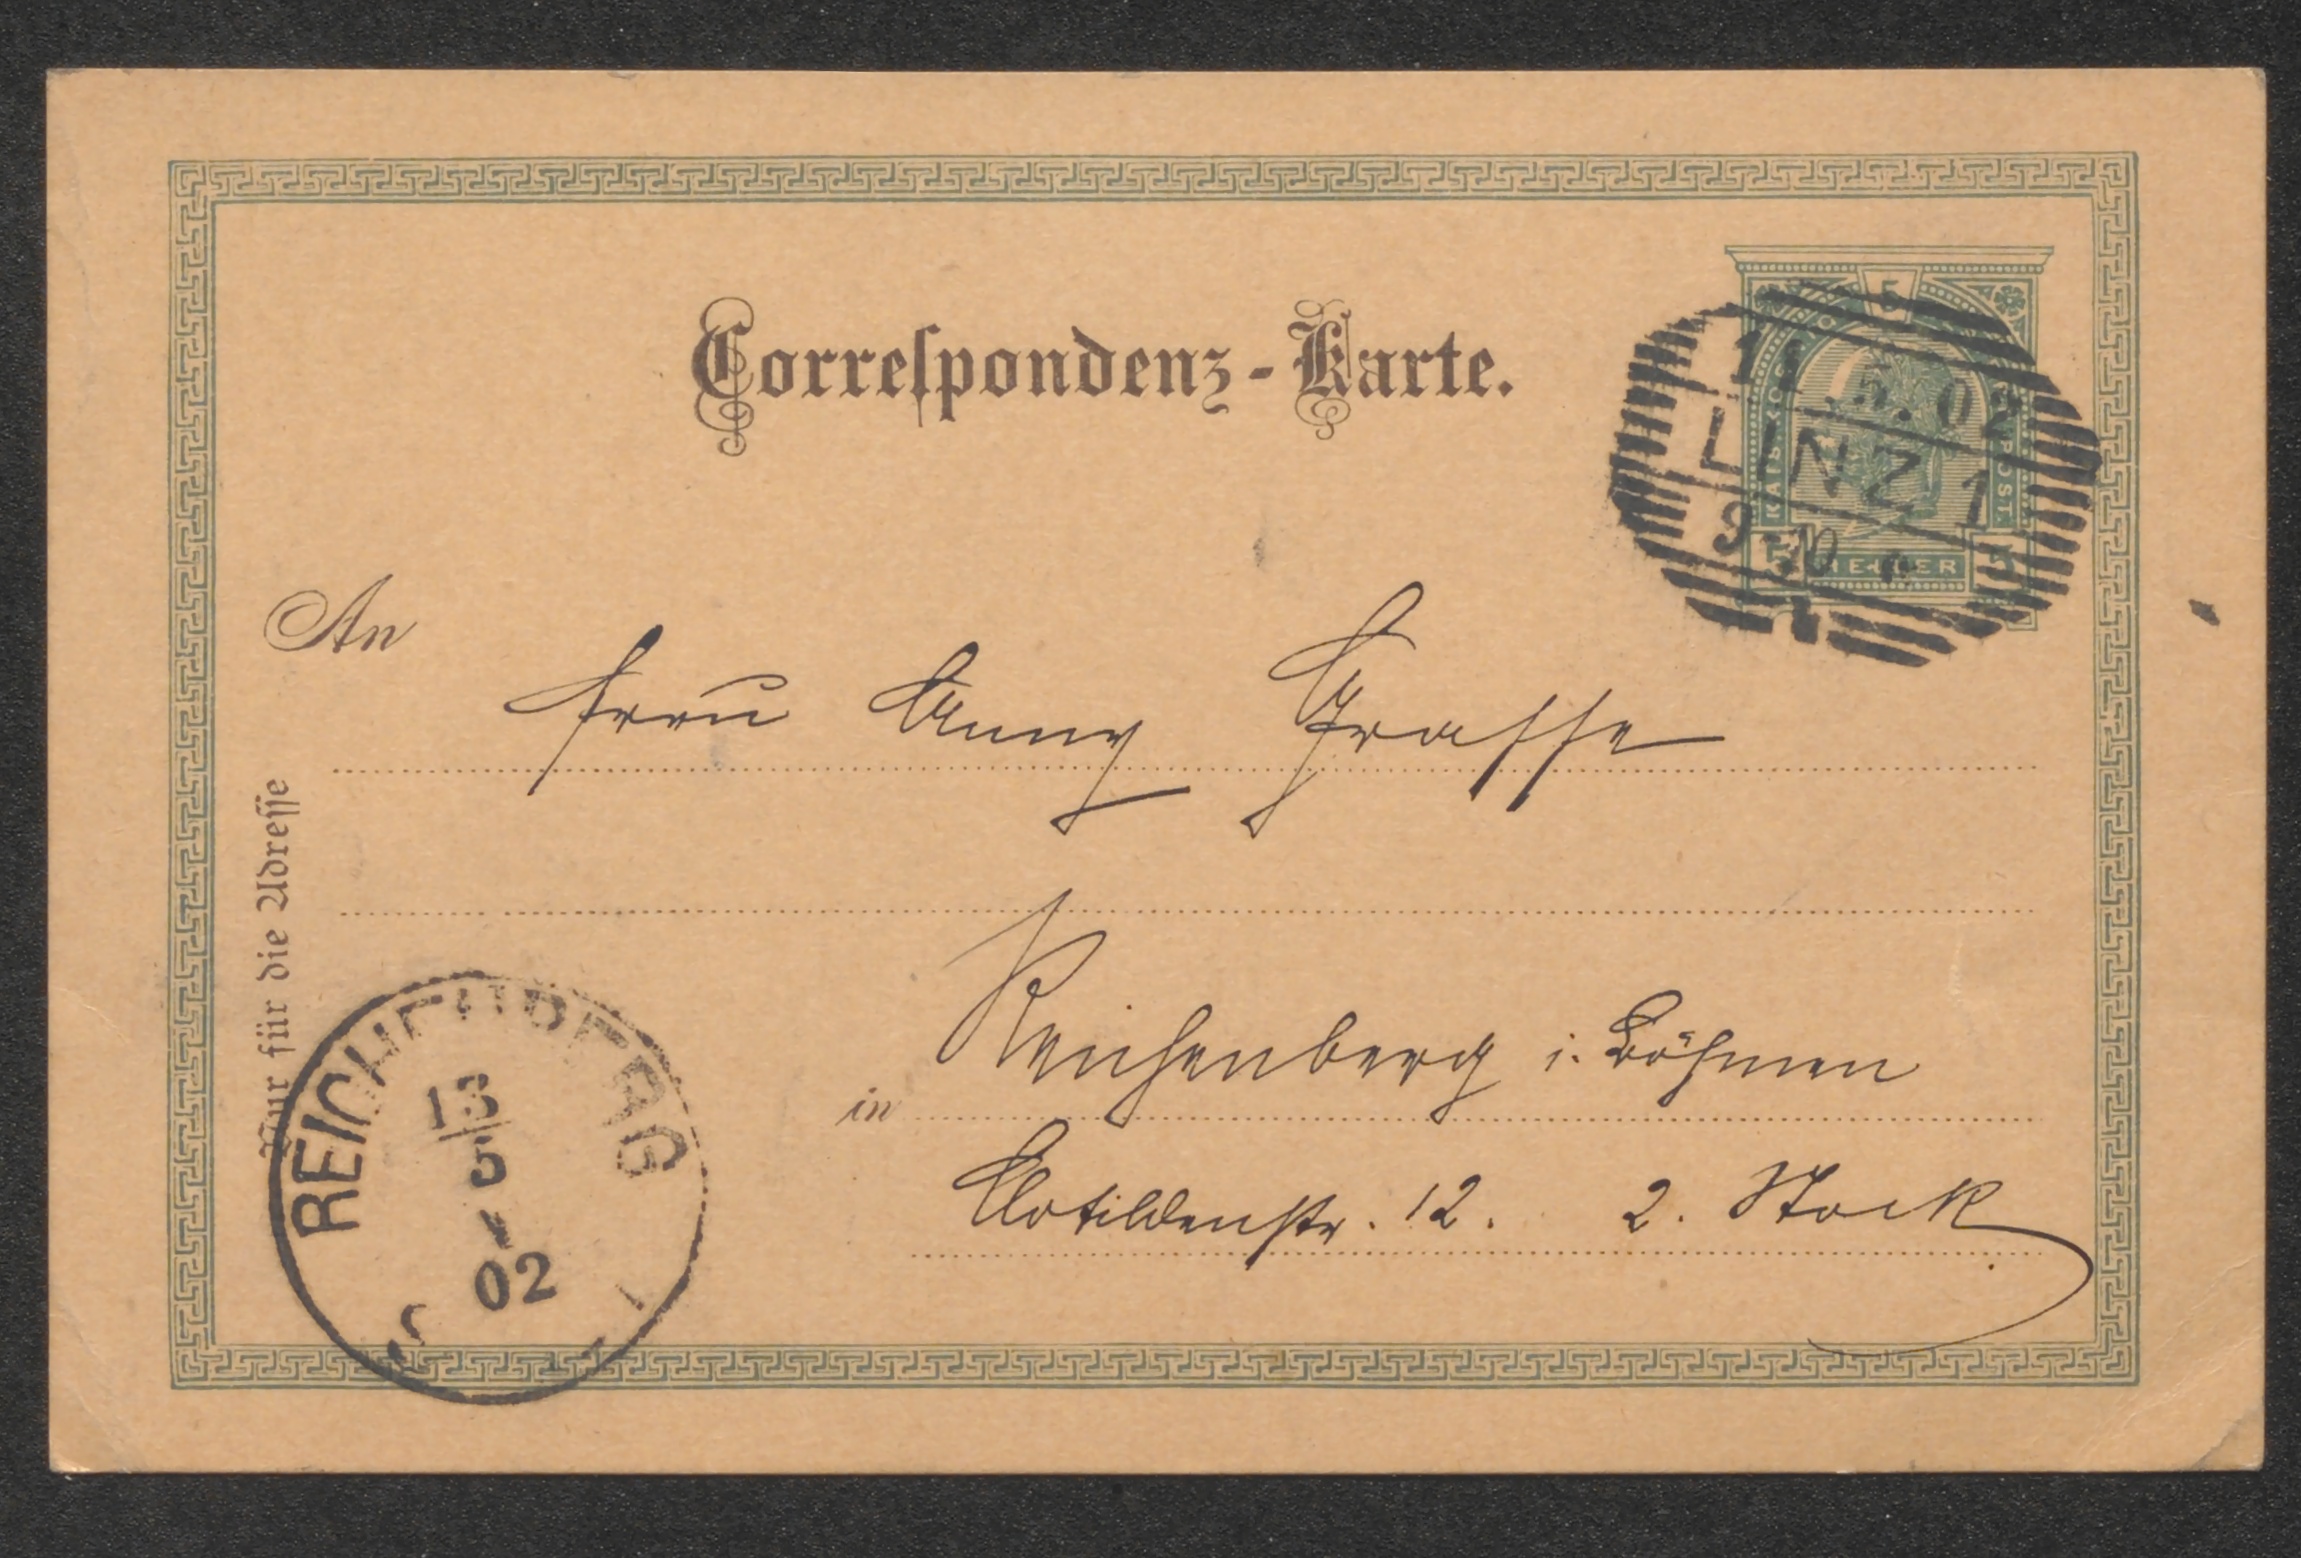 Correspondenz-Karte.
5
KAIS. KÖ POST.
HELLER
11.5.02
LINZ 1
9-10
An
Frau Anny Grasse
Nur für die Adresse
in Reichenberg i. Böhmen
Clotildenstr. 12. 2. Stock
REICHENBERG
13
5
02